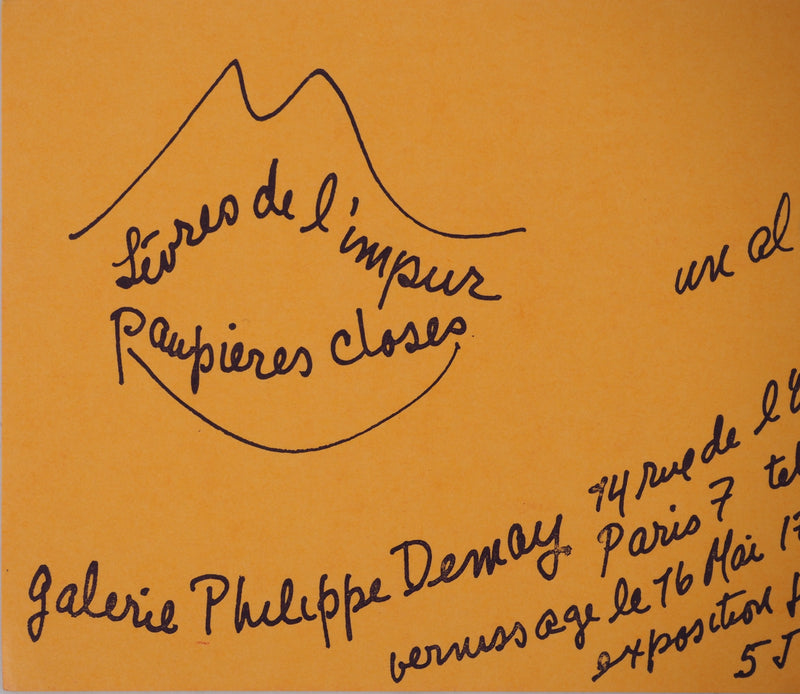 Lèvres de l'impur
Paupières closes
un al
Galerie Philippe Demay
14 rue de l'
Paris 7 tel
vernissage le 16 Mai 17
exposition
5 J